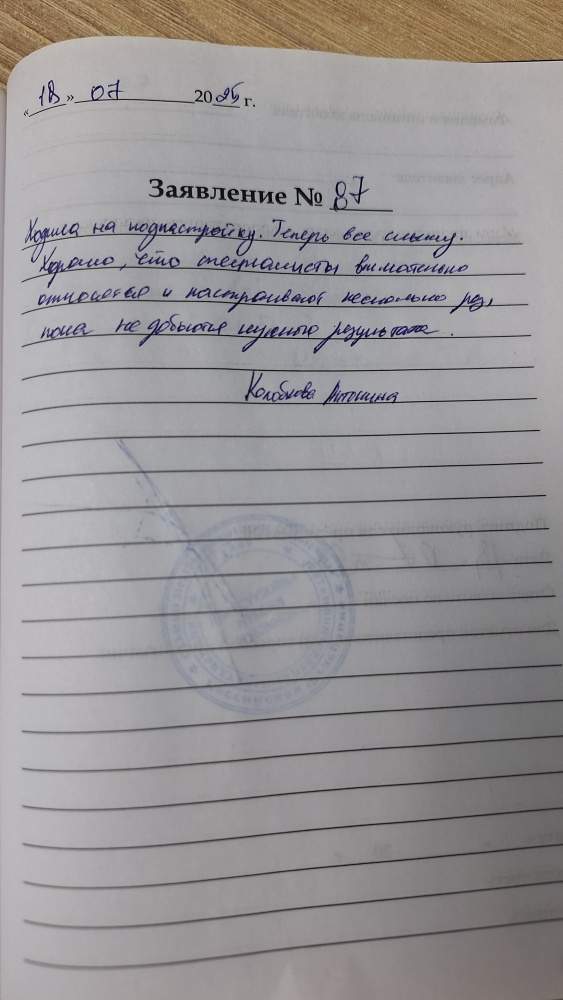 «18» 07 2025 г.
Заявление № 87
Ходила на поднастройку. Теперь все слышу.
Хорошо, что специалисты внимательно
относятся и настраивают несколько раз,
пока не добьются нужного результата.
Колобкова Антонина